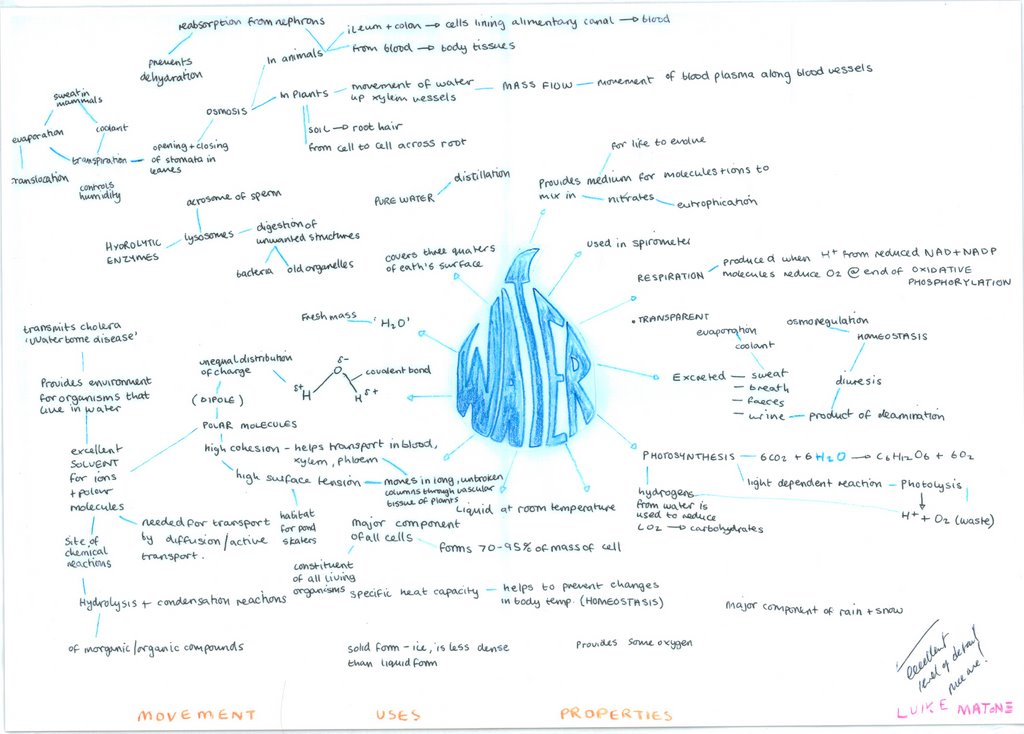 reabsorption from nephrons
prevents
dehydration
In animals
ileum + colon → cells lining alimentary canal → blood
from blood → body tissues
In Plants
movement of water
up xylem vessels
MASS FLOW
movement of blood plasma along blood vessels
osmosis
soil → root hair
from cell to cell across root
sweat in
mammals
evaporation
coolant
transpiration
translocation
controls
humidity
opening + closing
of stomata in
leaves
acrosome of sperm
HYDROLYTIC
ENZYMES
lysosomes
digestion of
unwanted structures
bacteria
old organelles
PURE WATER
distillation
covers three quaters
of eath's surface
for life to evolve
Provides medium for molecules + ions to
mix in
nitrates
eutrophication
used in spirometer
RESPIRATION
produced when H+ from reduced NAD + NADP
molecules reduce O2 @ end of OXIDATIVE
PHOSPHORYLATION
TRANSPARENT
evaporation
coolant
osmoregulation
HOMEOSTASIS
Excreted
sweat
breath
faeces
urine
diuresis
product of deamination
WATER
Fresh mass
'H2O'
unequal distribution
of charge
(DIPOLE)
δ-
O
covalent bond
δ+
H
H
δ+
POLAR MOLECULES
transmits cholera
'Waterborne disease'
Provides environment
for organisms that
live in water
excellent
SOLVENT
for ions
+ polour
molecules
high cohesion - helps transport in blood,
xylem, phloem
high surface tension
moves in long, unbroken
columns through vascular
tissue of plants
habitat
for pond
skaters
needed for transport
by diffusion/active
transport.
Site of
chemical
reactions
Hydrolysis + condensation reactions
of inorganic/organic compounds
Liquid at room temperature
major component
of all cells
forms 70-95% of mass of cell
constituent
of all living
organisms
specific heat capacity
helps to prevent changes
in body temp. (HOMEOSTASIS)
PHOTOSYNTHESIS
6CO2 + 6H2O → C6H12O6 + 6O2
light dependent reaction
Photolysis
H+ + O2 (waste)
hydrogens
from water is
used to reduce
CO2 → carbohydrates
solid form - ice, is less dense
than liquid form
Provides some oxygen
major component of rain + snow
excellent
level of detail
MOVEMENT
USES
PROPERTIES
LUKE MATONE